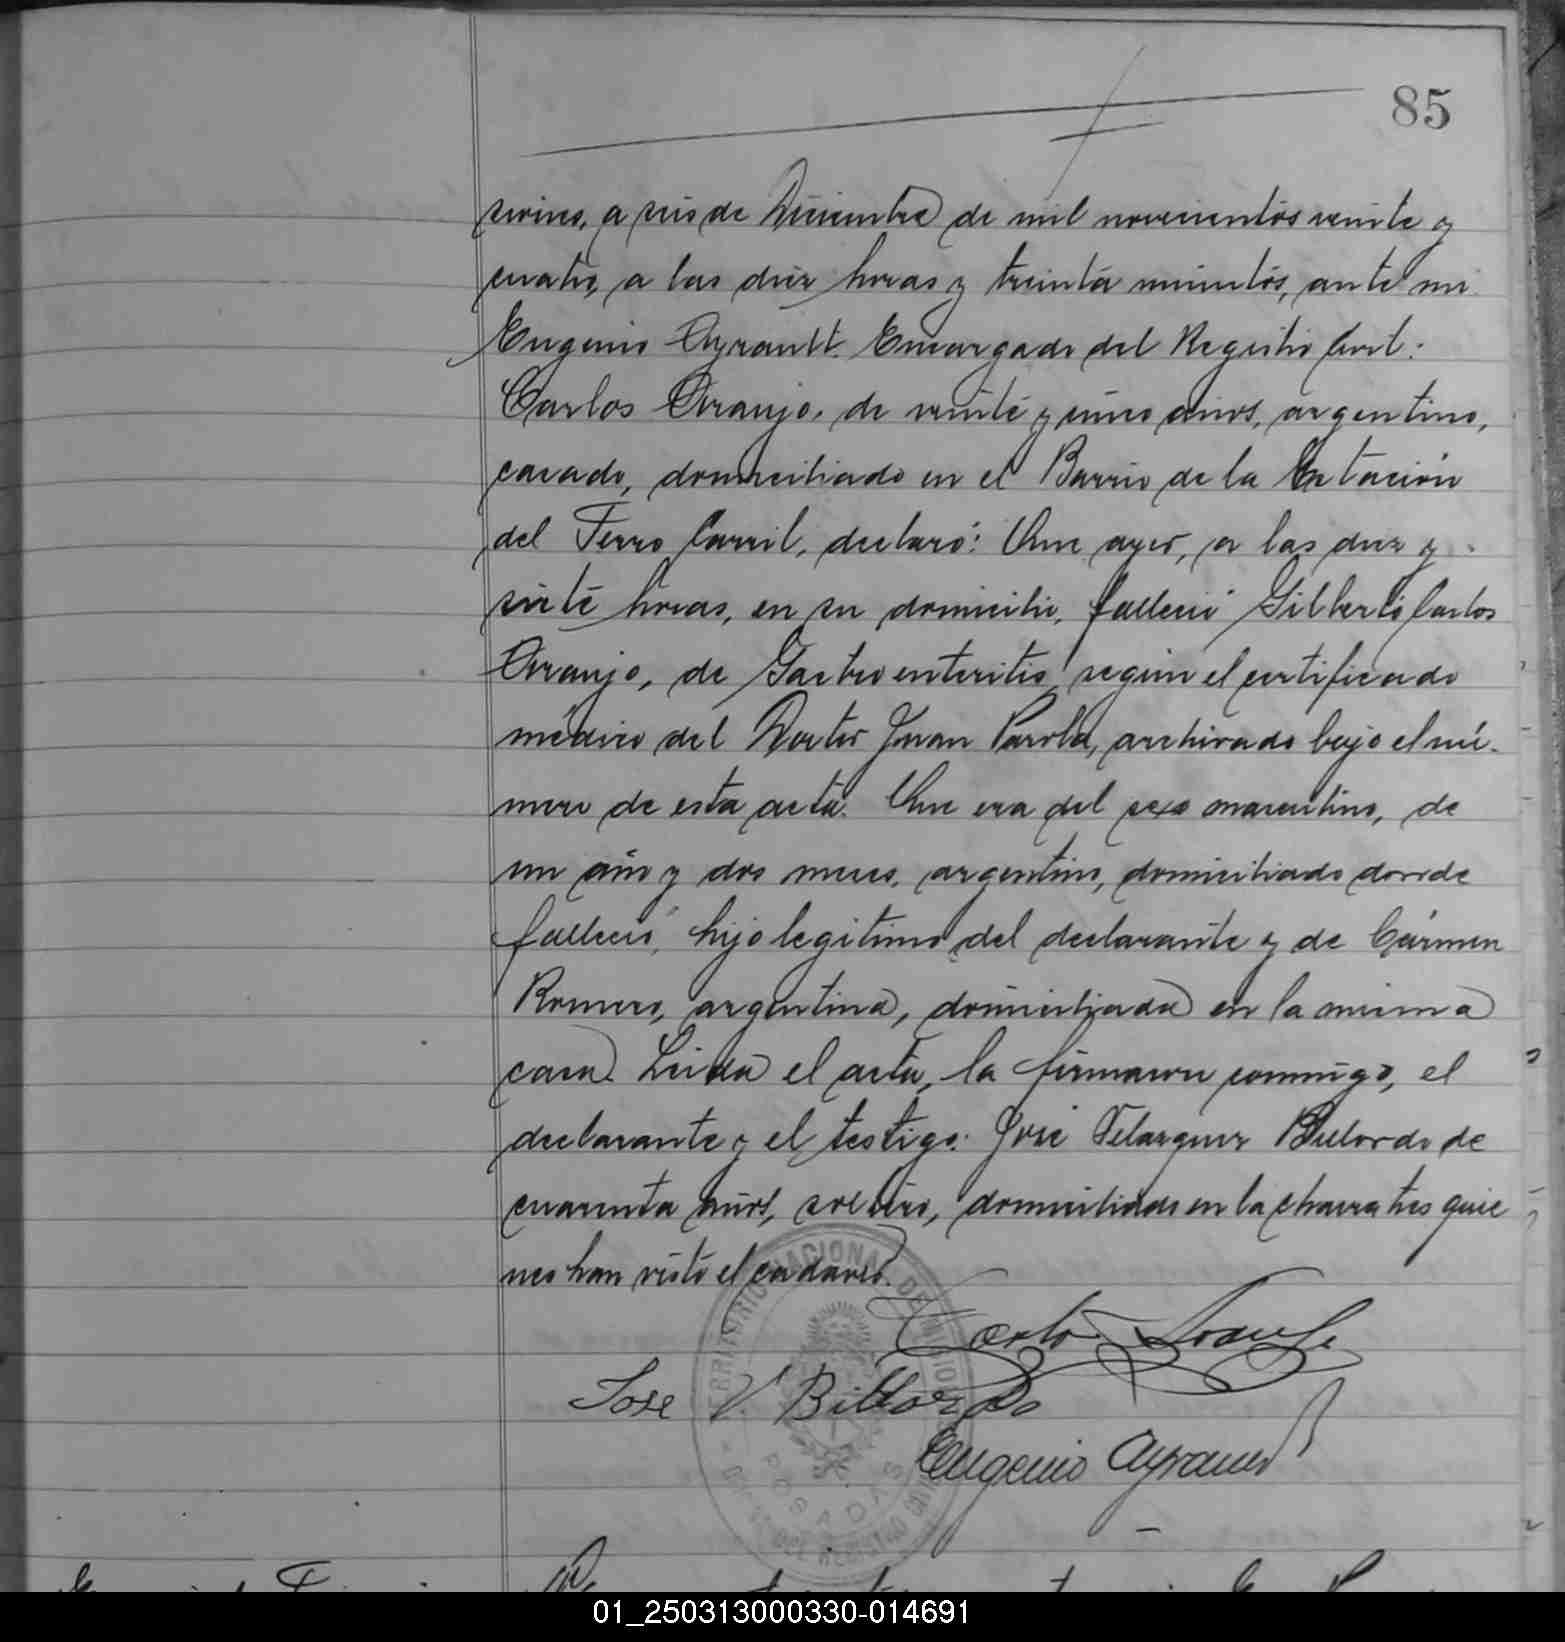 85
siones, a seis de Diciembre de mil novecientos veinte y
cuatro, a las diez horas y treinta minutos, ante mi
Eugenio Ayrault. Encargado del Registro Civil:
Carlos Araujo, de veinte y cinco años, argentino,
casado, domiciliado en el Barrio de la Estación
del Ferro Carril, declaró: Que ayer, a las diez y
siete horas, en su domicilio, falleció Gilberto Carlos
Araujo, de Gastro enteritis, según el certificado
médico del Doctor Juan Parola, archivado bajo el nú-
mero de esta acta. Que era del sexo masculino, de
un año y dos meses, argentino, domiciliado donde
falleció, hijo legitimo del declarante y de Cármen
Romero, argentina, domiciliada en la misma
casa. Leida el acta, la firmaron conmigo, el
declarante y el testigo: José Velazquez de
cuarenta años, soltero, domiciliado en la chacra tres quie
nes han visto el cadaver.
TERRITORIO NACIONAL DE MISIONES
POSADAS
DEL REGISTRO CIVIL
Carlos Araujo
Jose V. Billordo
Eugenio Ayrault
01_250313000330-014691